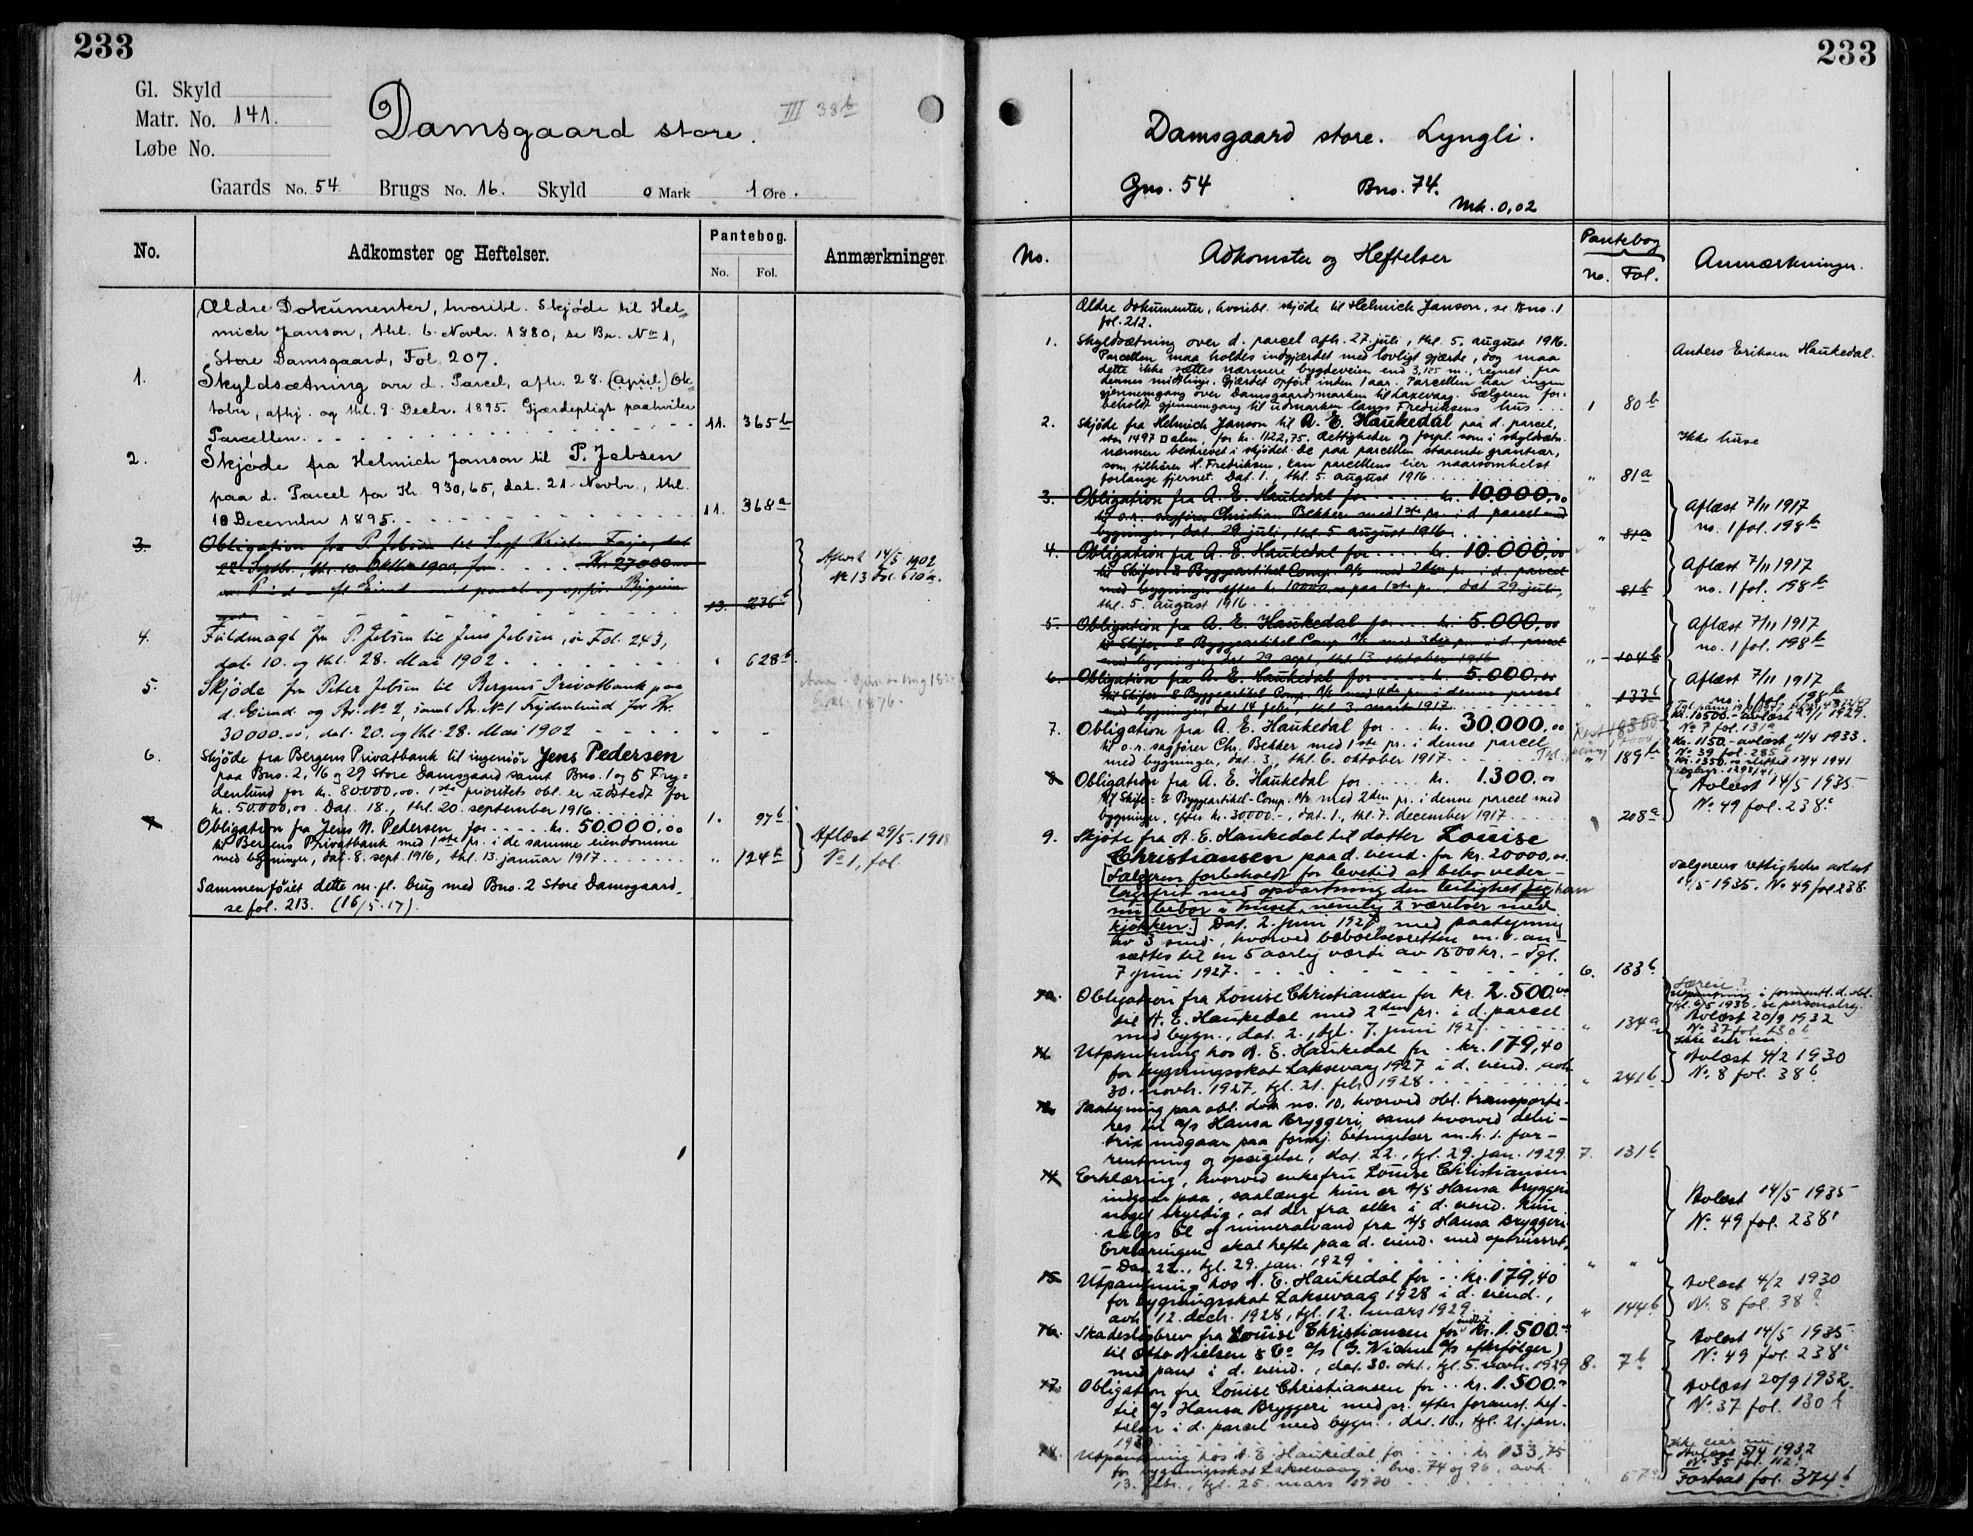 233
Gl. Skyld
Matr. No. 141.
Løbe No.
Damsgaard store.
III 38b
Gaards No. 54. Brugs No. 16. Skyld 0 Mark 1 Øre.
No. Adkomster og Heftelser. Pantebog. No. Fol. Anmærkninger
Ældre Dokumenter, hvoribl. Skjøde til Hel=
mich Janson, thl. 6. Novbr. 1880, se Br. No 1,
Store Damsgaard, Fol. 207.
1. Skyldsætning over d. Parcel, afh. 28. (April) Ok=
tober, afhj. og thl. 9. Decbr. 1895. Gjærdepligt paahviler
Parcellen. 11. 365b
2. Skjøde fra Helmich Janson til P. Jebsen
paa d. Parcel for Kr. 930,65, dat. 21. Novbr., thl.
10 December 1895. 11. 368a
3. Obligation fra P. Jebsen til
Kr. 27000
13. 236b
Aflæst 14/5 1902
No 13 Fol. 610a.
4. Fuldmagt fra P. Jebsen til Jens Jebsen, se Fol. 243,
dat. 10. og thl. 28. Mai 1902. " 628b
5. Skjøde fra Peter Jebsen til Bergens Privatbank paa
d. Eiend. og Br. No 2, samt Br. No 1 Frydenlund for Kr.
30000.00, dat. 20. og thl. 28. Mai 1902 " "
6. Skjøde fra Bergens Privatbank til ingeniør Jens Pedersen
paa Bno. 2, 16 og 29 Store Damsgaard samt Bno. 1 og 5 Fry=
denlund for kr. 80000,00. 1ste prioritets obl. er udstedt for
kr. 50.000,00. Dat. 18., thl. 20. september 1916. 1. 97b
7. Obligation fra Jens N. Pedersen for kr. 50.000,00
til Bergens Privatbank med 1ste pr. i de samme eiendomme
med bygninger, dat. 8. sept. 1916, thl. 13. januar 1917. " 124b
Aflæst 29/5. 1918
No 1, fol.
Sammenføiet dette m. fl. brug med Bno. 2 Store Damsgaard,
se fol. 213. (16/5. 17).
233
Damsgaard store. Lyngli.
Gno. 54 Bno. 74.
Mk. 0,02
No. Adkomster og Heftelser Pantebog No. Fol. Anmærkninger.
Ældre dokumenter, hvoribl. skjøde til Helmich Janson, se Bno. 1
fol. 212.
1. Skyldsætning over d. parcel afh. 27. juli, thl. 5. august 1916.
Parcellen maa holdes indgjærdet med lovligt gjærde, dog maa
dette ikke sættes nærmere bygdeveien end 3,125 m., regnet fra
dennes midtlinje. Gjærdet opført inden 1 aar. Parcellen har ingen
gjennemgang over Damsgaardsmarken til Laxevaag. Sælgeren for=
beholdt gjennemgang til udmarken langs Fredriksens hus. 1 80b
Anders Eriksen Haukedal.
2. Skjøde fra Helmich Janson til A. E. Haukedal paa d. parcel,
stor 1497 □ alen, for kr. 1122,75. Rettigheder og forpl. som i skyldsætn.
nærmere beskrevet i skjødet. De paa parcellen staaende grantrær,
som tilhører N. Fredriksen, kan parcellens eier naarsomhelst
forlange fjernet. Dat. 1., thl. 5. august 1916 " 81a
Ikke huse
3. Obligation fra A. E. Haukedal for kr. 10.000,00
til o.r. sagfører Christian Bekker med 1ste pr. i d. parcel med
bygninger, dat. 29 juli, thl. 5 august 1916 " 81a
Aflæst 7/11 1917
no. 1 fol. 198b
4. Obligation fra A. E. Haukedal for kr. 10.000,00
til Skifer & Byggeartikel Comp. A/S med 2den pr. i d. parcel
med bygninger efter kr. 10000.00 paa 1ste pr., dat. 29. juli,
thl. 5. august 1916 " 81b
Aflæst 7/11 1917
no. 1 fol. 198b
5. Obligation fra A. E. Haukedal for kr. 5.000,00
til Skifer & Byggeartikel Comp A/S med 3die pr. i d. parcel
med bygninger, dat. 29 sept., thl. 13 oktober 1916 " 104b
Aflæst 7/11 1917
no. 1 fol. 198b
6. Obligation fra A. E. Haukedal for kr. 5.000,00
til Skifer & Byggeartikel Comp. A/S med 4de pr. i denne parcel
med bygninger, dat. 14 febr., thl. 3. marts 1917 " 133b
Aflæst 7/11 1917
no. 1 fol. 198b
7. Obligation fra A. E. Haukedal for kr. 30.000,00
til o. r. sagfører Chr. Bekker med 1ste pr. i denne parcel
med bygninger, dat. 3., thl. 6. oktober 1917 " 189b
kr. 10500.- avlæst 29/1 1929.
No 7 fol. 131a
kr. 1150.- avlæst 11/4 1933.
No 39 fol. 285b
8. Obligation fra A. E. Haukedal for kr. 1.300.00
til Skifer- & Byggeartikel-Comp. A/S med 2den pr. i denne parcel med
bygninger, efter kr. 30000.-, dat. 1., thl. 7. december 1917 208a
Avlæst 14/5 1935
No. 49 fol. 238.
9. Skjøte fra A. E. Haukedal til datter Louise
Christiansen paa d. eiend. for kr. 20000,00.
[Sælgeren forbeholdt for levetid at bebo veder-
lagsfrit med opvartning den leilighet han
nu bebor i huset, nemlig 2 værelser med
kjøkken.] Dat. 2. juni 1927, med paategning
av 3 smd., hvorved beboelsesretten m. v. an-
sættes til en 5 aarlig værdi av 1500 kr. - Tgl.
7 juni 1927. 6. 133b
Sælgerens rettigheter avlæst
14/5 1935. No 49 fol 238.
10. Obligation fra Louise Christiansen for kr. 2.500.00
til A. E. Haukedal med 2den pr. i d. parcel
med bygn., dat. 2., tgl. 7. juni 1927. " 134a
Avlæst 20/9 1932
No. 37 fol. 130b
Ikke eier nu.
11. Utpantning hos A. E. Haukedal for kr. 179,40
for bygningsskat Laksevaag 1927 i d. eiend. avh.
30. novbr. 1927, tgl. 21. febr. 1928 " 241b
Avlæst 4/2 1930
No. 8 fol. 38b
12. Paategning paa obl. dok. no. 10, hvorved obl. transporte-
res til A/S Hansa Bryggeri, samt hvorved debi-
trix indgaar paa forskj. betingelser m. h. t. for-
rentning og opsigelse, dat. 22., tgl. 29. jan. 1929. 7. 131b
14. Erklæring, hvorved enkefru Louise Christiansen
indgaar paa, saalænge hun er A/S Hansa Bryggeri
noget skyldig, at der fra eller i d. eiend. kun
sælges øl og mineralvand fra A/S Hansa Bryggeri.
Erklæringen skal hefte paa d. eiend. med opt.
- Dat. 22., tgl. 29. jan. 1929 " "
Avlæst 14/5 1935
No. 49 fol. 238.
15. Utpantning hos A. E. Haukedal for kr. 179,40
for bygningsskat Laksevaag 1928 i d. eiend.,
avh. 12. decbr. 1928, tgl. 12. mars 1929. " 144b
Avlæst 4/2 1930
No. 8 fol. 38b
16. Skadesløsbrev fra Louise Christiansen for indtil kr. 1.500.-
til Otto Nielsen & Co A/S (G. A/S efterfølger)
med pant i d. eiend., dat. 30. okt., tgl. 5. novbr. 1929 8. 7b
Avlæst 14/5 1935
No. 49 fol. 238.
17. Obligation fra Louise Christiansen for kr. 1.500.-
til A/S Hansa Bryggeri med pr. efter foranst. hef-
telser i d. parcel med bygn., dat. 10., tgl. 21. jan.
1930
Avlæst 20/9 1932.
No. 37 fol. 130b
Utpantning hos A. E. Haukedal for kr. 133,75
for bygningsskat Laksevaag i bno. 74 og 96, avh.
13. febr., tgl. 25. mars 1930
Ikke eier nu.
Avlæst 5/4 1932
No. 35 fol. 112
Fortsat fol. 374b